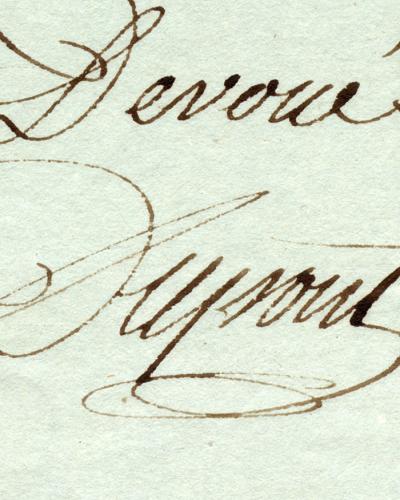 Devoué
Dupont